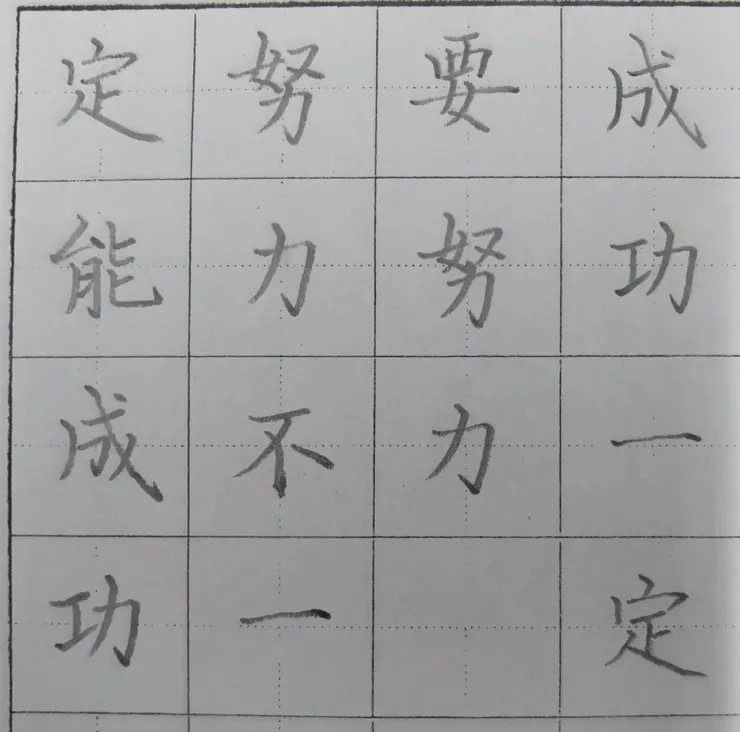 成功一定
要努力
努力不一
定能成功